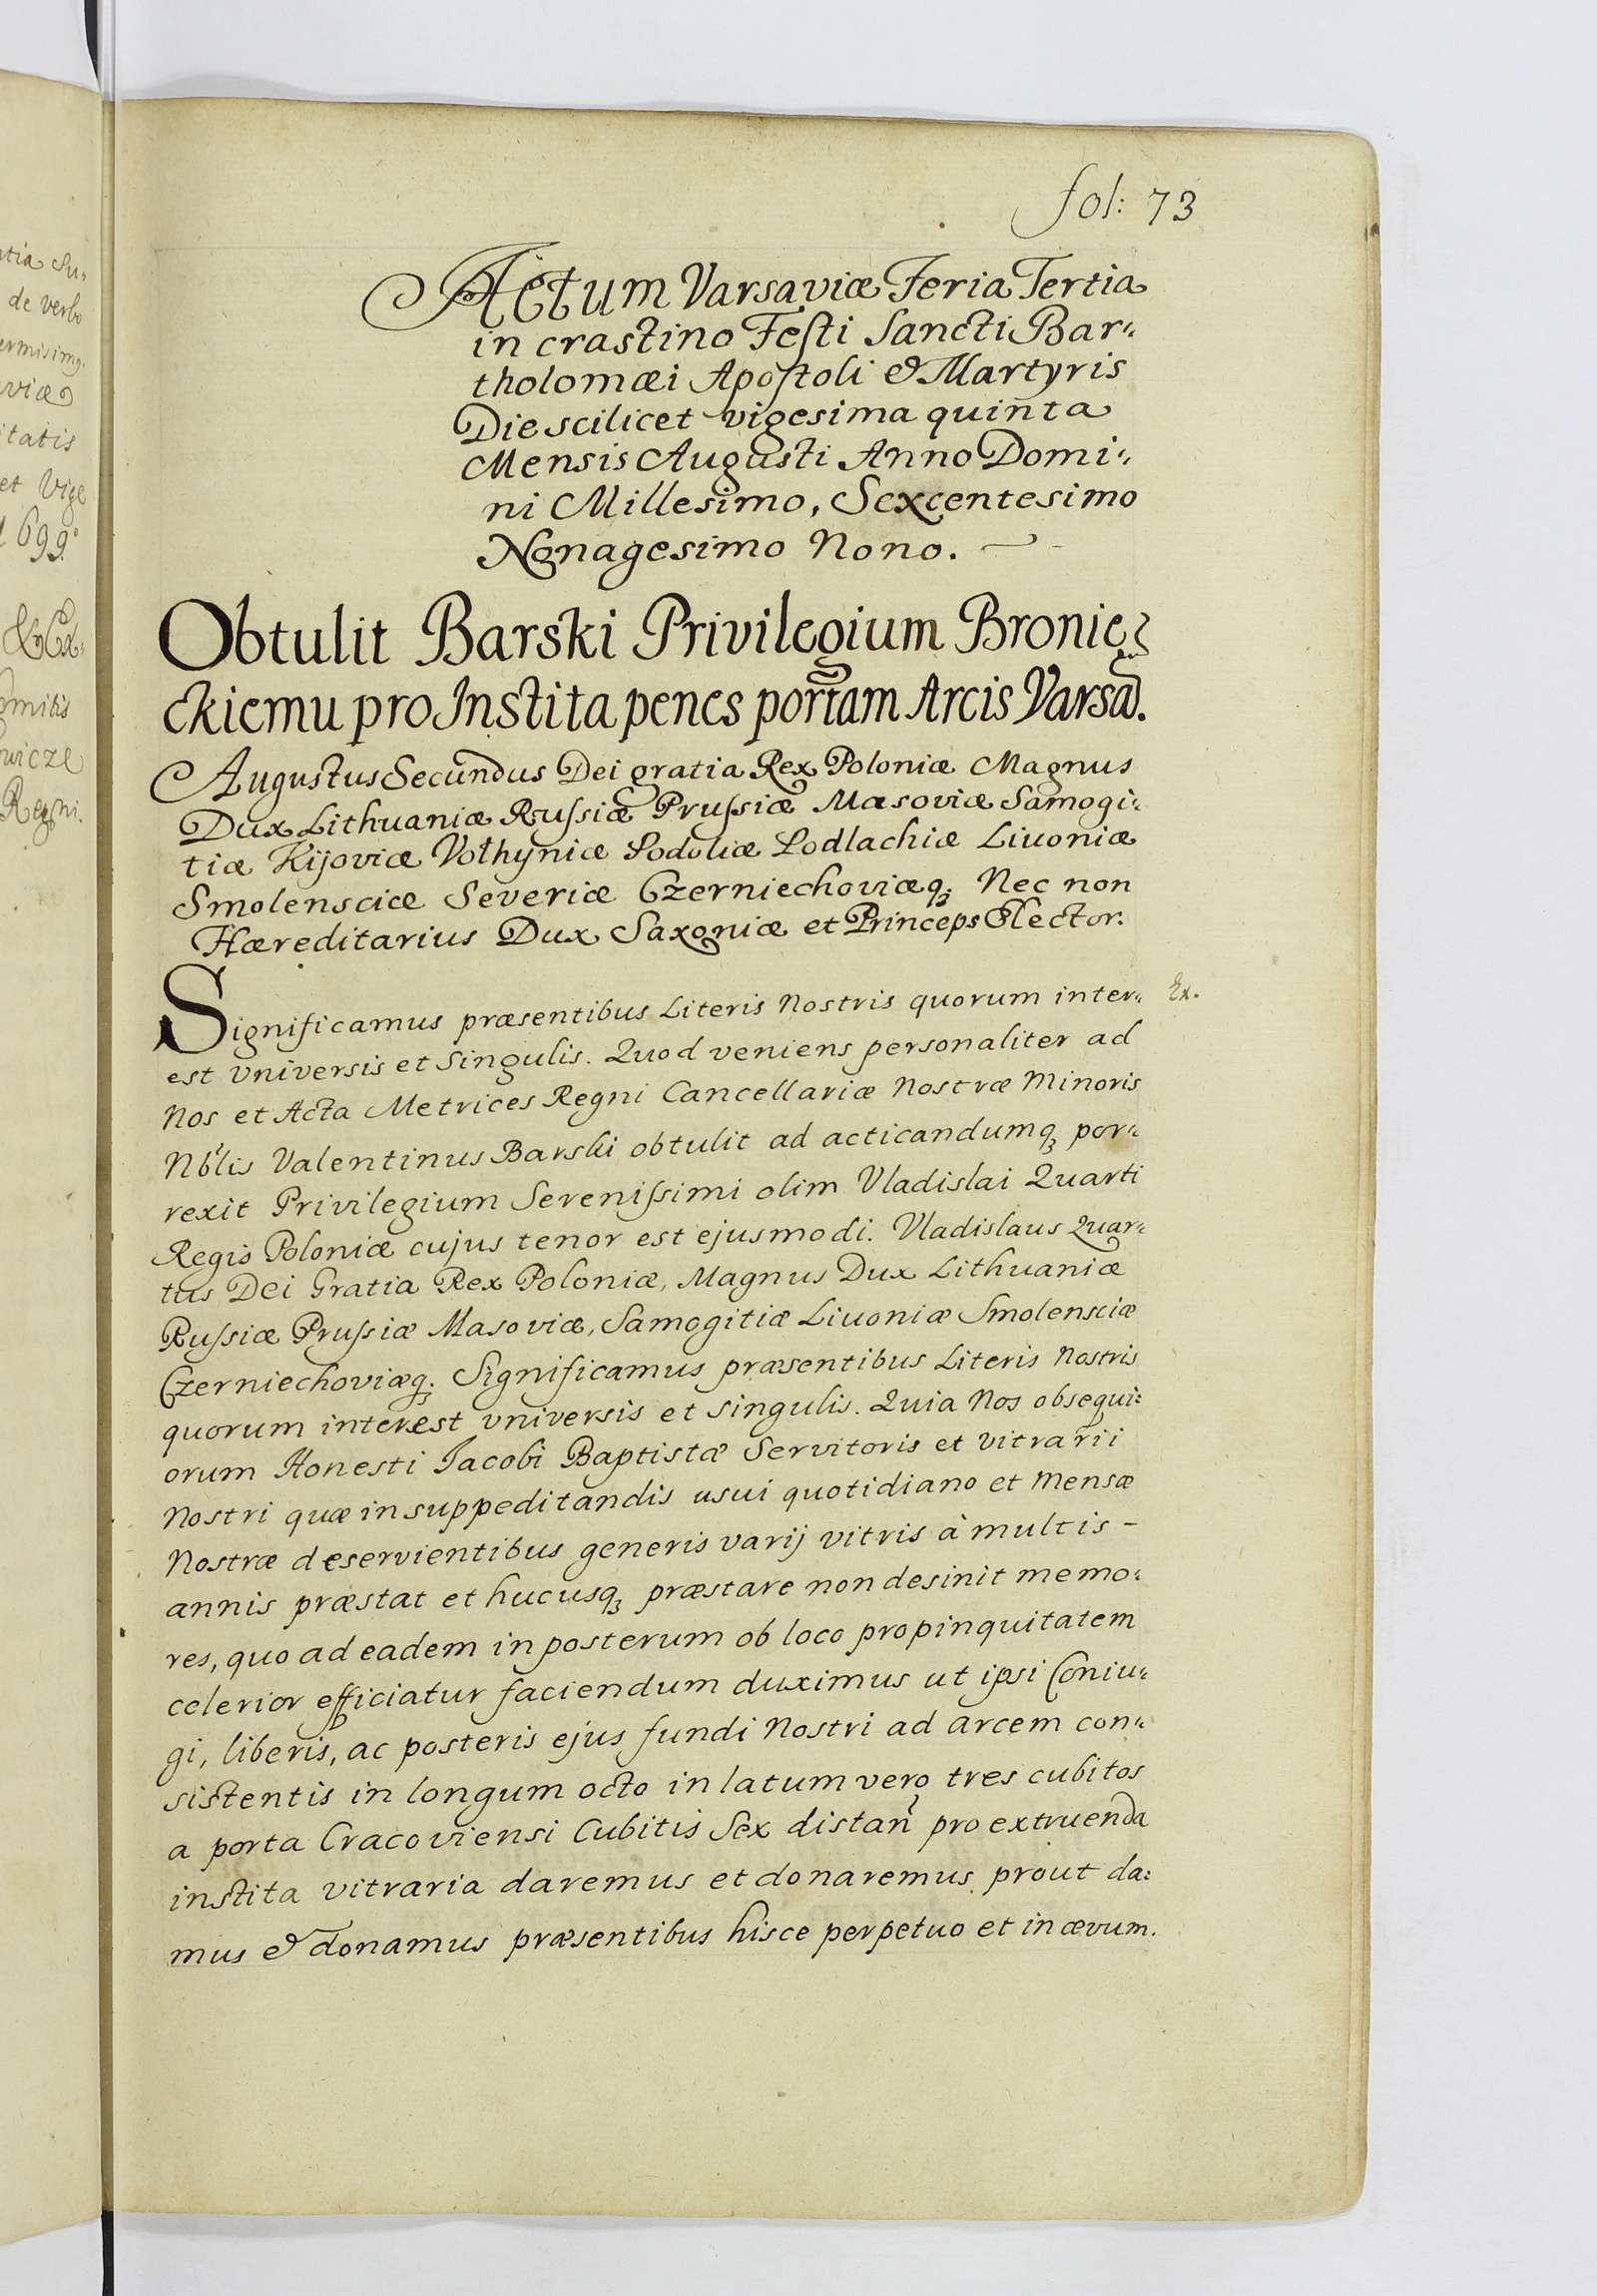 ntia Su-
de verbo
viæ
itatis
et Vige
1699°
Regni.
fol: 73
Actum Varsaviæ Feria Tertia
in crastino Festi Sancti Bar-
tholomæi Apostoli & Martyris
Die scilicet vigesima quinta
Mensis Augusti Anno Domi-
ni Millesimo, Sexcentesimo
Nonagesimo Nono.
Obtulit Barski Privilegium Bronie-
ckiemu pro Instita penes portam Arcis Varsa.
Augustus Secundus Dei gratia Rex Poloniæ Magnus
Dux Lithuaniæ Russiæ Prussiæ Masoviæ Samogi-
tiæ Kijoviæ Vołhyniæ Podoliæ Podlachiæ Livoniæ
Smolensciæ Severiæ Czerniechoviæq; Nec non
Hæreditarius Dux Saxoniæ et Princeps Elector.
Significamus præsentibus Literis Nostris quorum inter-
Ex.
est vniversis et singulis. Quod veniens personaliter ad
Nos et Acta Metrices Regni Cancellariæ Nostræ Minoris
Nblis Valentinus Barski obtulit ad acticandumq; por-
rexit Privilegium Serenissimi olim Vladislai Quarti
Regis Poloniæ cujus tenor est ejusmodi. Vladislaus Quar-
tus Dei Gratia Rex Poloniæ, Magnus Dux Lithuaniæ
Russiæ Prussiæ Masoviæ, Samogitiæ Liuoniæ Smolensciæ
Czerniechoviæq; Significamus præsentibus Literis Nostris
quorum interest vniversis et singulis. Quia Nos obsequi-
orum Honesti Jacobi Baptistæ Servitoris et vitrarii
Nostri quæ in suppeditandis usui quotidiano et Mensæ
Nostræ deservientibus generis varij vitris à multis -
annis præstat et hucusq; præstare non desinit memo-
res, quo ad eadem in posterum ob loco propinquitatem
celerior efficiatur faciendum duximus ut ipsi Coniu-
gi, liberis, ac posteris ejus fundi Nostri ad arcem con-
sistentis in longum octo in latum vero tres cubitos
a porta Cracoviensi Cubitis Sex distan pro extruenda
instita vitraria daremus et donaremus prout da-
mus & donamus præsentibus hisce perpetuo et in ævum.